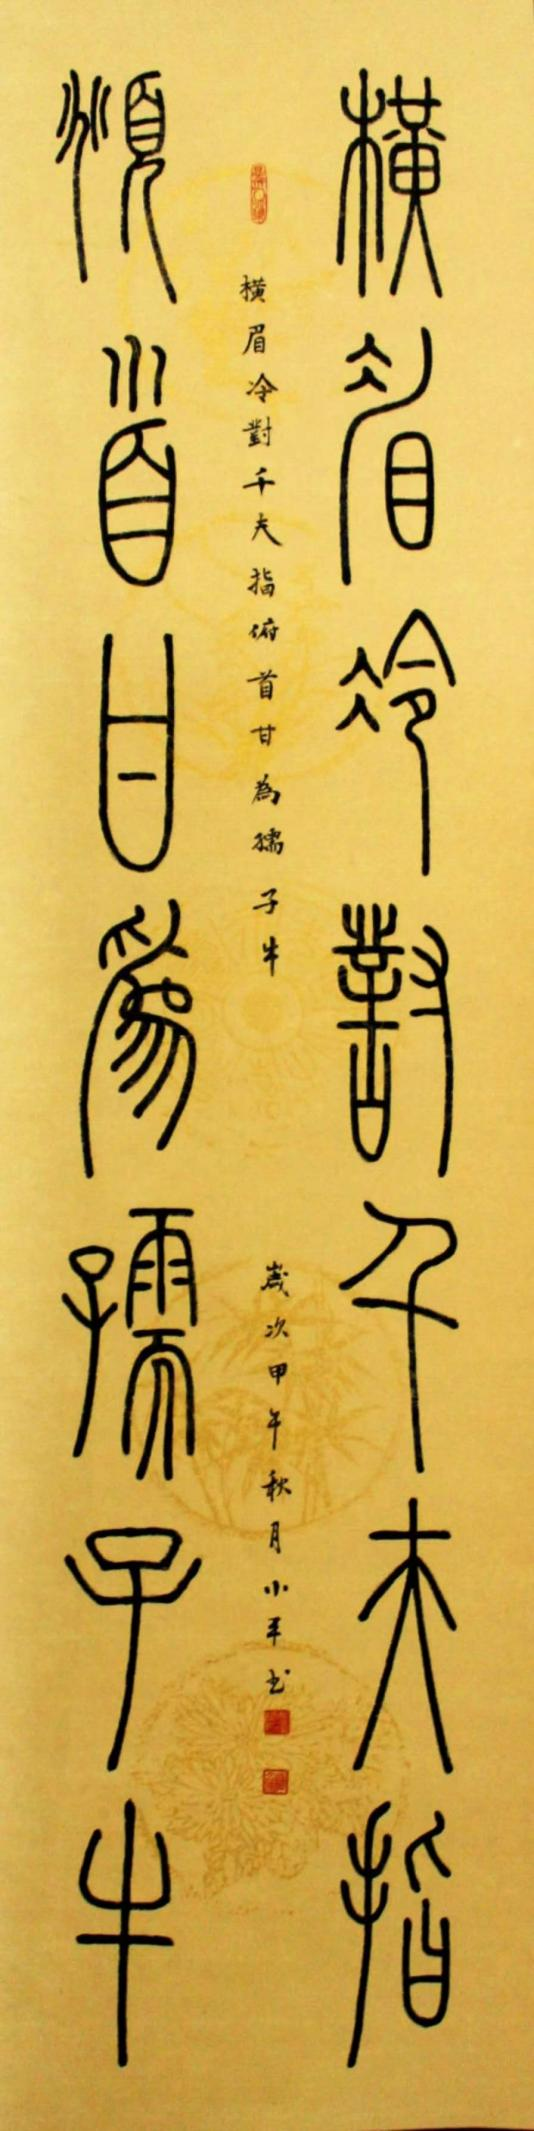 横眉冷對千夫指
横眉冷對千夫指俯首甘為孺子牛
歲次甲午秋月小平书
頫首甘為孺子牛